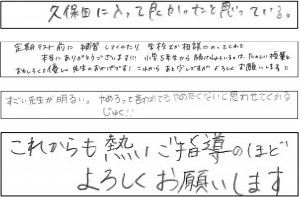 久保田に入って良かったと思っている。
定期テスト前に補習してくれたり 学校など相談にのってくれて
本当にありがとうございます!! 小学5年生から続けられているのは、たのしい授業と
おもしろくて優しい先生のおかげです! これから あと少しですが よろしくお願いします!!
すごい先生が明るい。やめろって言われてもやめたくないと思わせてくれる
じゅく!!
これからも熱いご指導のほど
よろしくお願いします